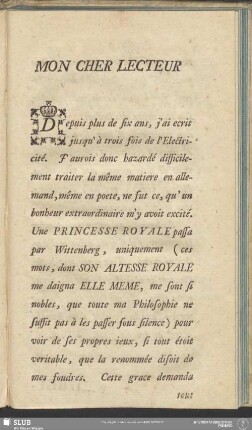 MON CHER LECTEUR
Depuis plus de six ans, j'ai ecrit
jusqu'à trois fois de l'Electri-
cité. J'aurois donc hazardé difficile-
ment traiter la même matiere en alle-
mand, même en poete, ne fut ce, qu'un
bonheur extraordinaire m'y avoit excité.
Une PRINCESSE ROYALE passa
par Wittenberg, uniquement (ces
mots, dont SON ALTESSE ROYALE
me daigna ELLE MEME, me sont si
nobles, que toute ma Philosophie ne
suffit pas à les passer sous silence) pour
voir de ses propres ieux, si tout étoit
veritable, que la renommée disoit de
mes foudres. Cette grace demanda
SLUB